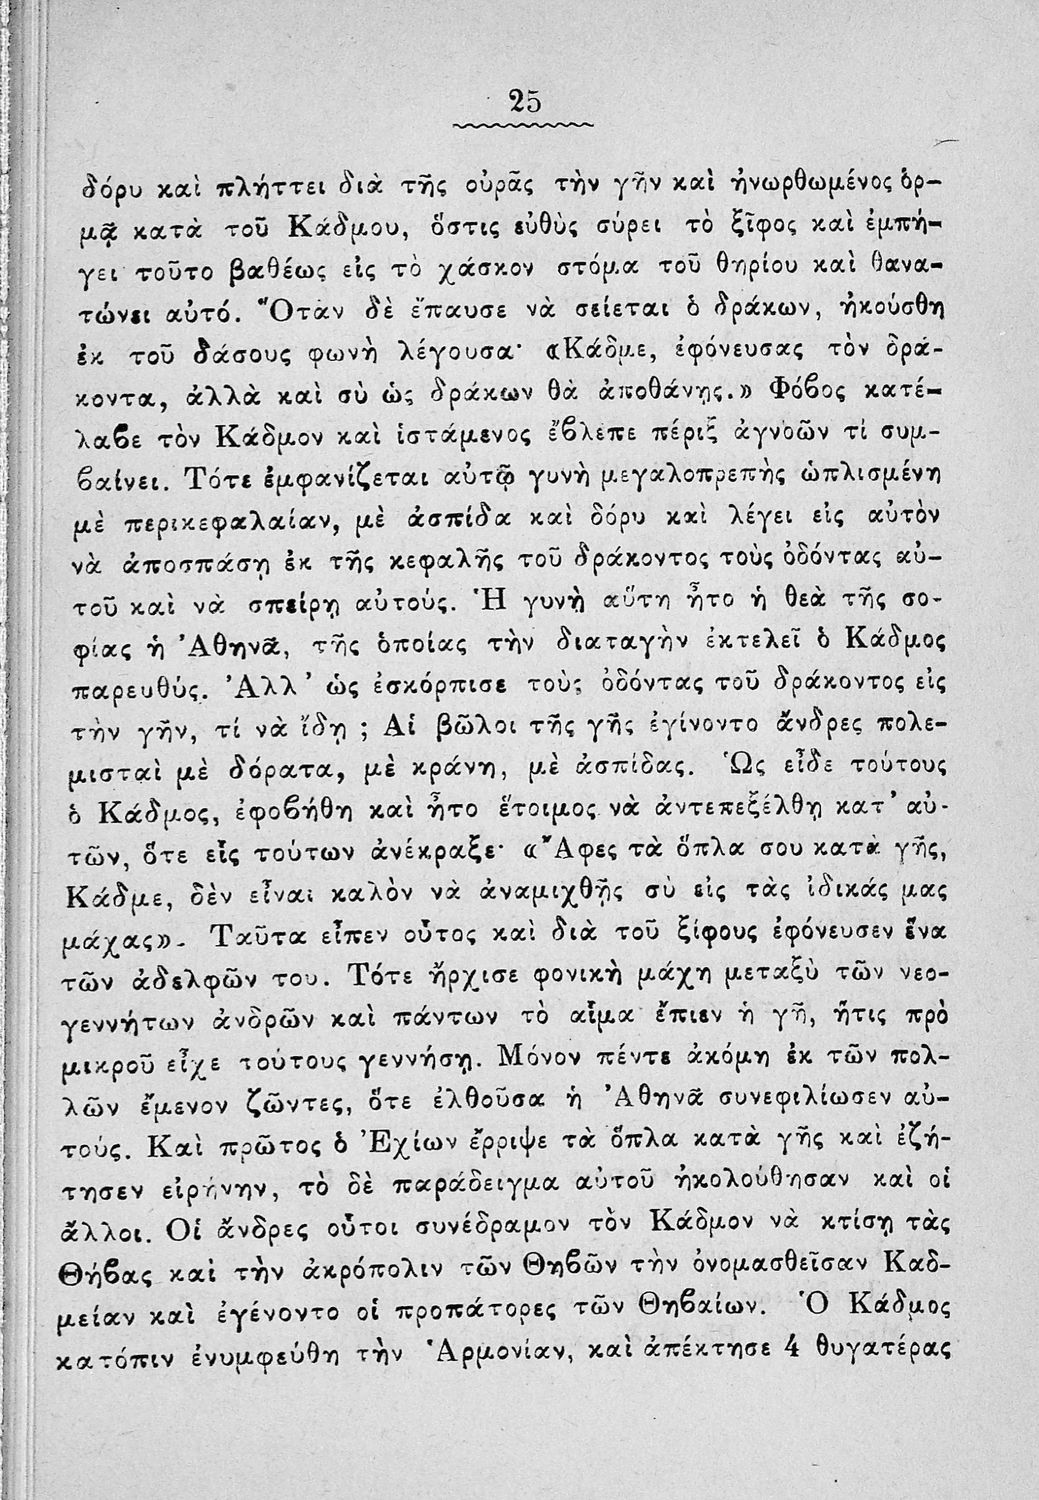 25
δόρυ καὶ πλήττει διὰ τῆς οὐρᾶς τὴν γῆν καὶ ἠνωρθωμένος ὁρ-
μᾷ κατὰ τοῦ Κάδμου, ὅστις εὐθὺς σύρει τὸ ξῖφος καὶ ἐμπή-
γει τοῦτο βαθέως εἰς τὸ χάσκον στόμα τοῦ θηρίου καὶ θανα-
τώνει αὐτό. Ὅταν δὲ ἔπαυσε νὰ σείεται ὁ δράκων, ἠκούσθη
ἐκ τοῦ δάσους φωνὴ λέγουσα· «Κάδμε, ἐφόνευσας τὸν δρά-
κοντα, ἀλλὰ καὶ σὺ ὡς δράκων θὰ ἀποθάνῃς.» Φόβος κατέ-
λαβε τὸν Κάδμον καὶ ἱστάμενος ἔβλεπε πέριξ ἀγνοῶν τί συμ-
βαίνει. Τότε ἐμφανίζεται αὐτῷ γυνὴ μεγαλοπρεπὴς ὡπλισμένη
μὲ περικεφαλαίαν, μὲ ἀσπίδα καὶ δόρυ καὶ λέγει εἰς αὐτὸν
νὰ ἀποσπάσῃ ἐκ τῆς κεφαλῆς τοῦ δράκοντος τοὺς ὀδόντας αὐ-
τοῦ καὶ νὰ σπείρῃ αὐτούς. Ἡ γυνὴ αὕτη ἦτο ἡ θεὰ τῆς σο-
φίας ἡ Ἀθηνᾶ, τῆς ὁποίας τὴν διαταγὴν ἐκτελεῖ ὁ Κάδμος
παρευθύς. Ἀλλ' ὡς ἐσκόρπισε τοὺς ὀδόντας τοῦ δράκοντος εἰς
τὴν γῆν, τί νὰ ἴδῃ ; Αἱ βῶλοι τῆς γῆς ἐγίνοντο ἄνδρες πολε-
μισταὶ μὲ δόρατα, μὲ κράνη, μὲ ἀσπίδας. Ὡς εἶδε τούτους
ὁ Κάδμος, ἐφοβήθη καὶ ἦτο ἕτοιμος νὰ ἀντεπεξέλθῃ κατ' αὐ-
τῶν, ὅτε εἷς τούτων ἀνέκραξε· «Ἄφες τὰ ὅπλα σου κατὰ γῆς,
Κάδμε, δὲν εἶναι καλὸν νὰ ἀναμιχθῇς σὺ εἰς τὰς ἰδικάς μας
μάχας». Ταῦτα εἶπεν οὗτος καὶ διὰ τοῦ ξίφους ἐφόνευσεν ἕνα
τῶν ἀδελφῶν του. Τότε ἤρχισε φονικὴ μάχη μεταξὺ τῶν νεο-
γεννήτων ἀνδρῶν καὶ πάντων τὸ αἷμα ἔπιεν ἡ γῆ, ἥτις πρὸ
μικροῦ εἶχε τούτους γεννήσῃ. Μόνον πέντε ἀκόμη ἐκ τῶν πολ-
λῶν ἔμενον ζῶντες, ὅτε ἐλθοῦσα ἡ Ἀθηνᾶ συνεφιλίωσεν αὐ-
τούς. Καὶ πρῶτος ὁ Ἐχίων ἔρριψε τὰ ὅπλα κατὰ γῆς καὶ ἐζή-
τησεν εἰρήνην, τὸ δὲ παράδειγμα αὐτοῦ ἠκολούθησαν καὶ οἱ
ἄλλοι. Οἱ ἄνδρες οὗτοι συνέδραμον τὸν Κάδμον νὰ κτίσῃ τὰς
Θήβας καὶ τὴν ἀκρόπολιν τῶν Θηβῶν τὴν ὀνομασθεῖσαν Καδ-
μείαν καὶ ἐγένοντο οἱ προπάτορες τῶν Θηβαίων. Ὁ Κάδμος
κατόπιν ἐνυμφεύθη τὴν Ἁρμονίαν, καὶ ἀπέκτησε 4 θυγατέρας